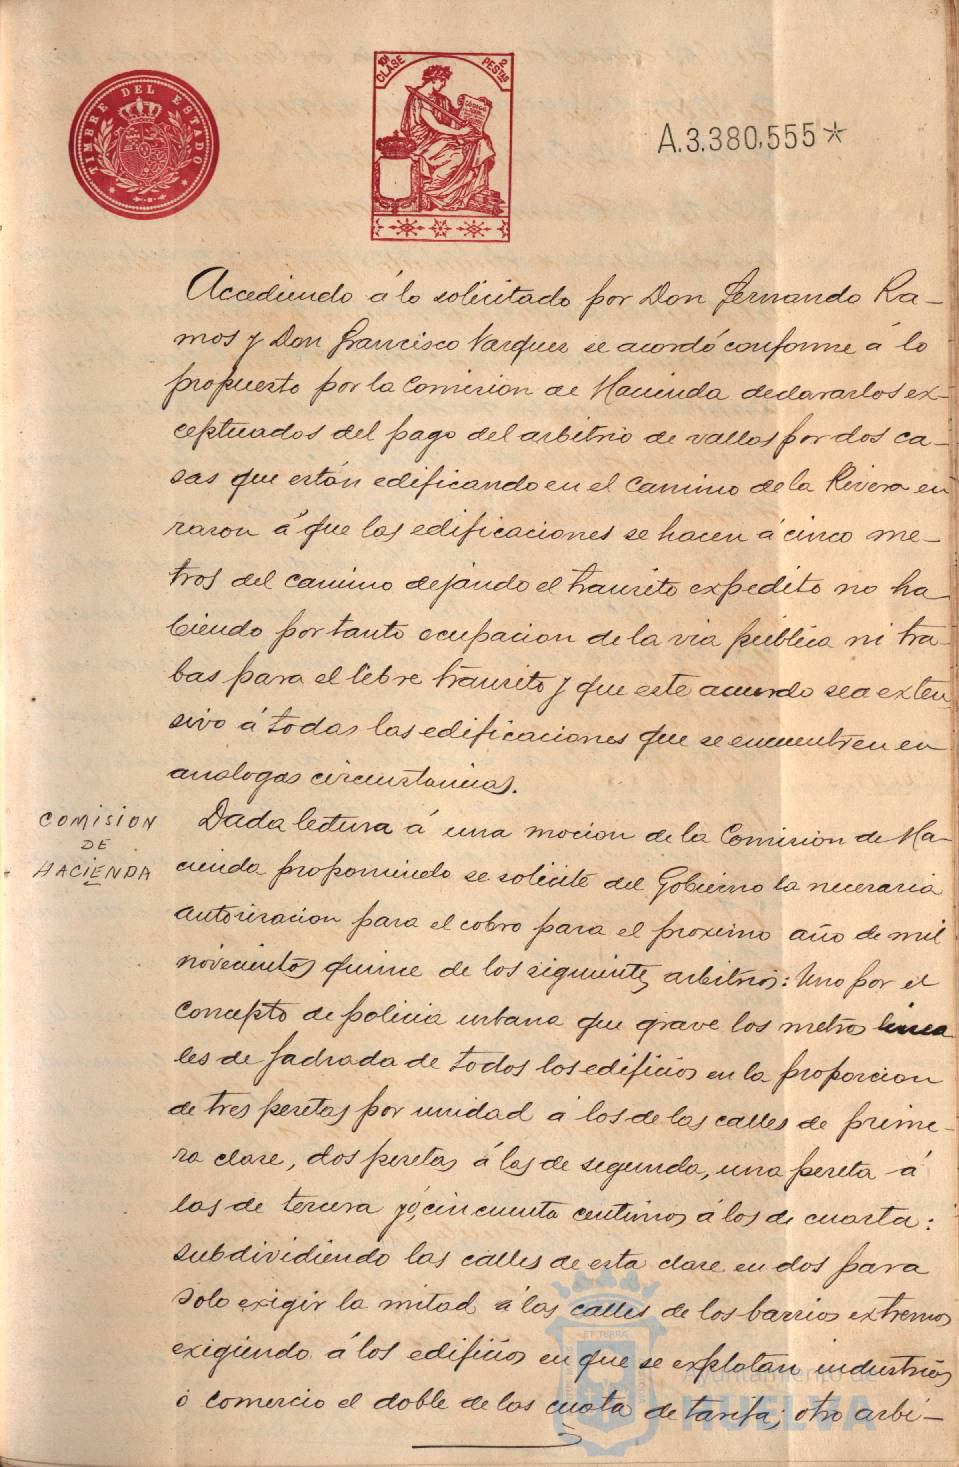 TIMBRE DEL ESTADO
10ª CLASE 2 PESTAS
A.3.380,555*
Accediendo á lo solicitado por Don Fernando Ra-
mos y Don Francisco Vazquez se acordó conforme á lo
propuesto por la Comision de Hacienda declararlos ex-
ceptuados del pago del arbitrio de vallas por dos ca-
sas que están edificando en el Camino de la Rivera en
razon á que las edificaciones se hacen á cinco me-
tros del camino dejando el transito expedito no ha
biendo por tanto ocupacion de la via pública ni tra-
bas para el libre transito y que este acuerdo sea exten
sivo á todas las edificaciones que se encuentren en
analogas circunstancias.
COMISION
DE
HACIENDA
Dada lectura á una mocion de la Comision de Ha-
cienda proponiendo se solicite del Gobierno la necesaria
autorizacion para el cobro para el proximo año de mil
novecientos quince de los siguientes arbitrios: Uno por el
concepto de policia urbana que grave los metros linea
les de fachada de todos los edificios en la proporcion
de tres pesetas por unidad á los de las calles de prime-
ra clase, dos pesetas á las de segunda, una peseta á
las de tercera y cincuenta centimos á los de cuarta:
subdividiendo las calles de esta clase en dos para
solo exigir la mitad á las calles de los barrios extremos
exigiendo á los edificios en que se explotan industrias
ó comercio el doble de las cuota de tarifa; otro arbi-
Ayuntamiento de
HUELVA